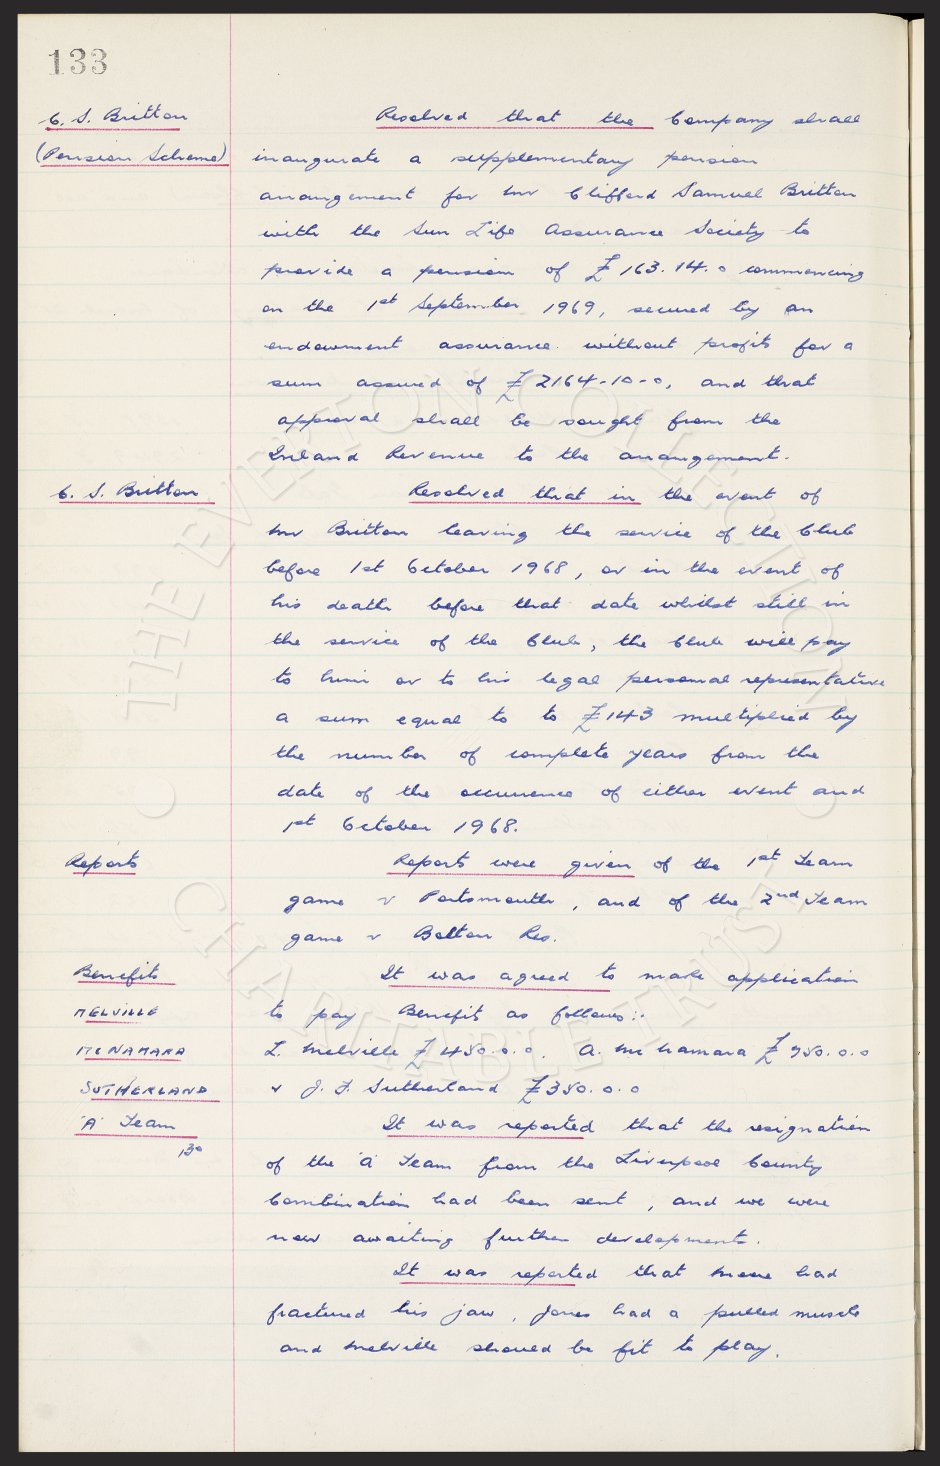 133
C. S. Britton
(Pension Scheme)
Resolved that the Company shall
inaugurate a supplementary pension
arrangement for Mr Clifford Samuel Britton
with the Sun Life Assurance Society to
provide a pension of £163.14.0 commencing
on the 1st September 1969, secured by an
endowment assurance without profits for a
sum assured of £2164-10-0, and that
approval shall be sought from the
Inland Revenue to the arrangement.
C. S. Britton
Resolved that in the event of
Mr Britton leaving the service of the Club
before 1st October 1968, or in the event of
his death before that date whilst still in
the service of the Club, the Club will pay
to him or to his legal personal representative
a sum equal to to £143 multiplied by
the number of complete years from the
date of the occurrence of either event and
1st October 1968.
Reports
Reports were given of the 1st Team
game v Portsmouth, and of the 2nd Team
game v Bolton Res.
Benefits
It was agreed to make application
MELVILLE
to pay Benefits as follows:-
McNAMARA
L. Melville £450.0.0. A. McNamara £950.0.0
SUTHERLAND
v J. F. Sutherland £350.0.0
'A' Team
It was reported that the resignation
of the 'A' Team from the Liverpool County
Combination had been sent, and we were
now awaiting further developments.
It was reported that Moore had
fractured his jaw, Jones had a pulled muscle
and Melville should be fit to play.
© THE EVERTON COLLECTION ©
CHARITABLE TRUST